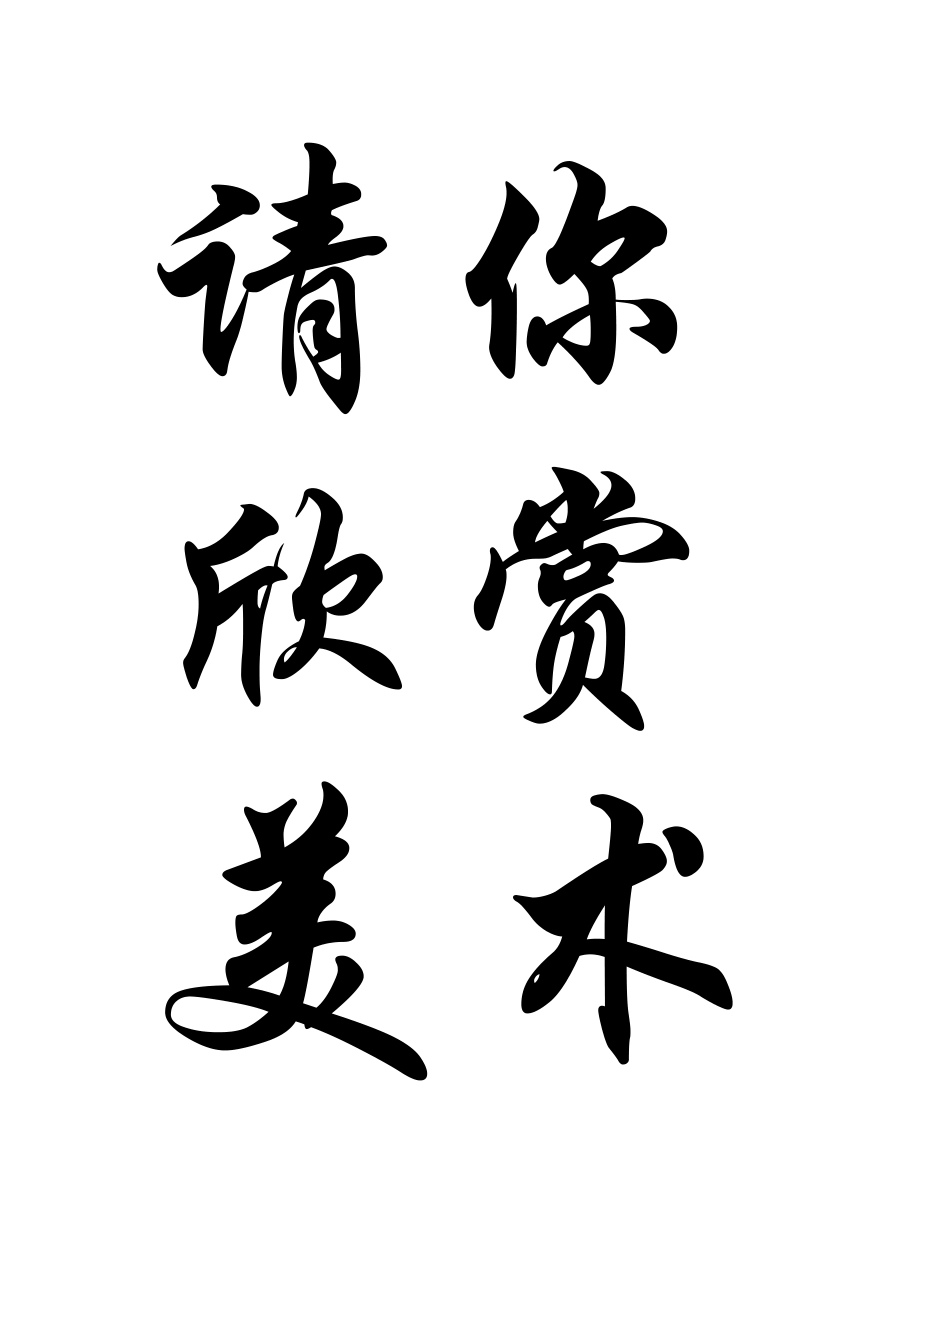 请你
欣赏
美术